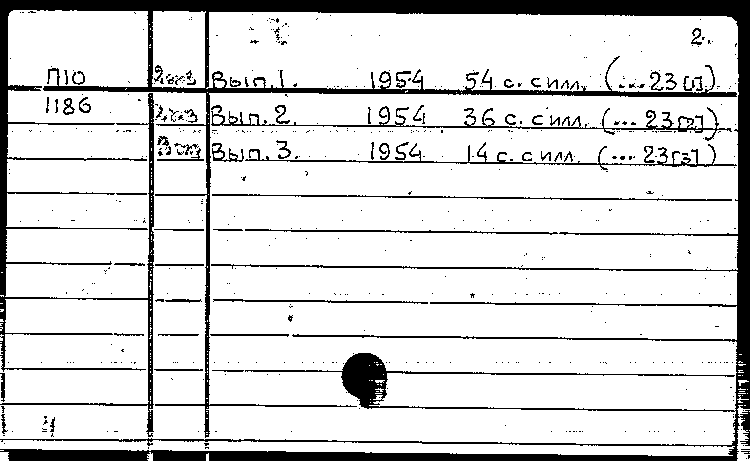 2.
П10 2экз Вып. 1. 1954 54 с. с илл. (...23[1].)
1186 2экз Вып. 2. 1954 36 с. с илл. (...23[2])
Вып. 3. 1954 14 с. с илл. (...23[3])